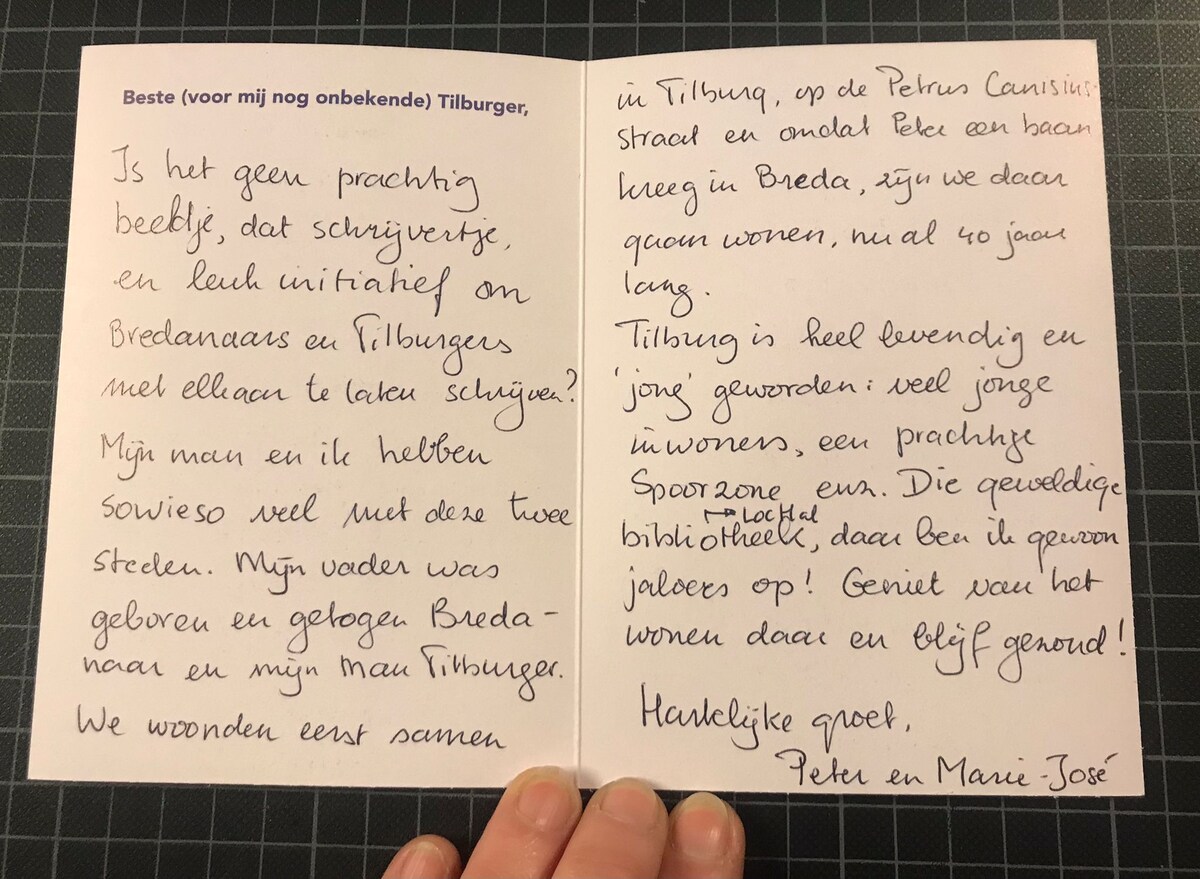 Beste (voor mij nog onbekende) Tilburger,
Is het geen prachtig
beeldje, dat schrijvertje,
en leuk initiatief om
Bredanaars en Tilburgers
met elkaar te laten schrijven?
Mijn man en ik hebben
sowieso veel met deze twee
steden. Mijn vader was
geboren en getogen Breda-
naar en mijn man Tilburger.
We woonden eerst samen
in Tilburg, op de Petrus Canisius-
straat en omdat Peter een baan
kreeg in Breda, zijn we daar
gaan wonen, nu al 40 jaar
lang.
Tilburg is heel levendig en
'jong' geworden: veel jonge
inwoners, een prachtige
Spoorzone enz. Die geweldige
→ LocHal
bibliotheek, daar ben ik gewoon
jaloers op! Geniet van het
wonen daar en blijf gezond!
Hartelijke groet,
Peter en Marie-José